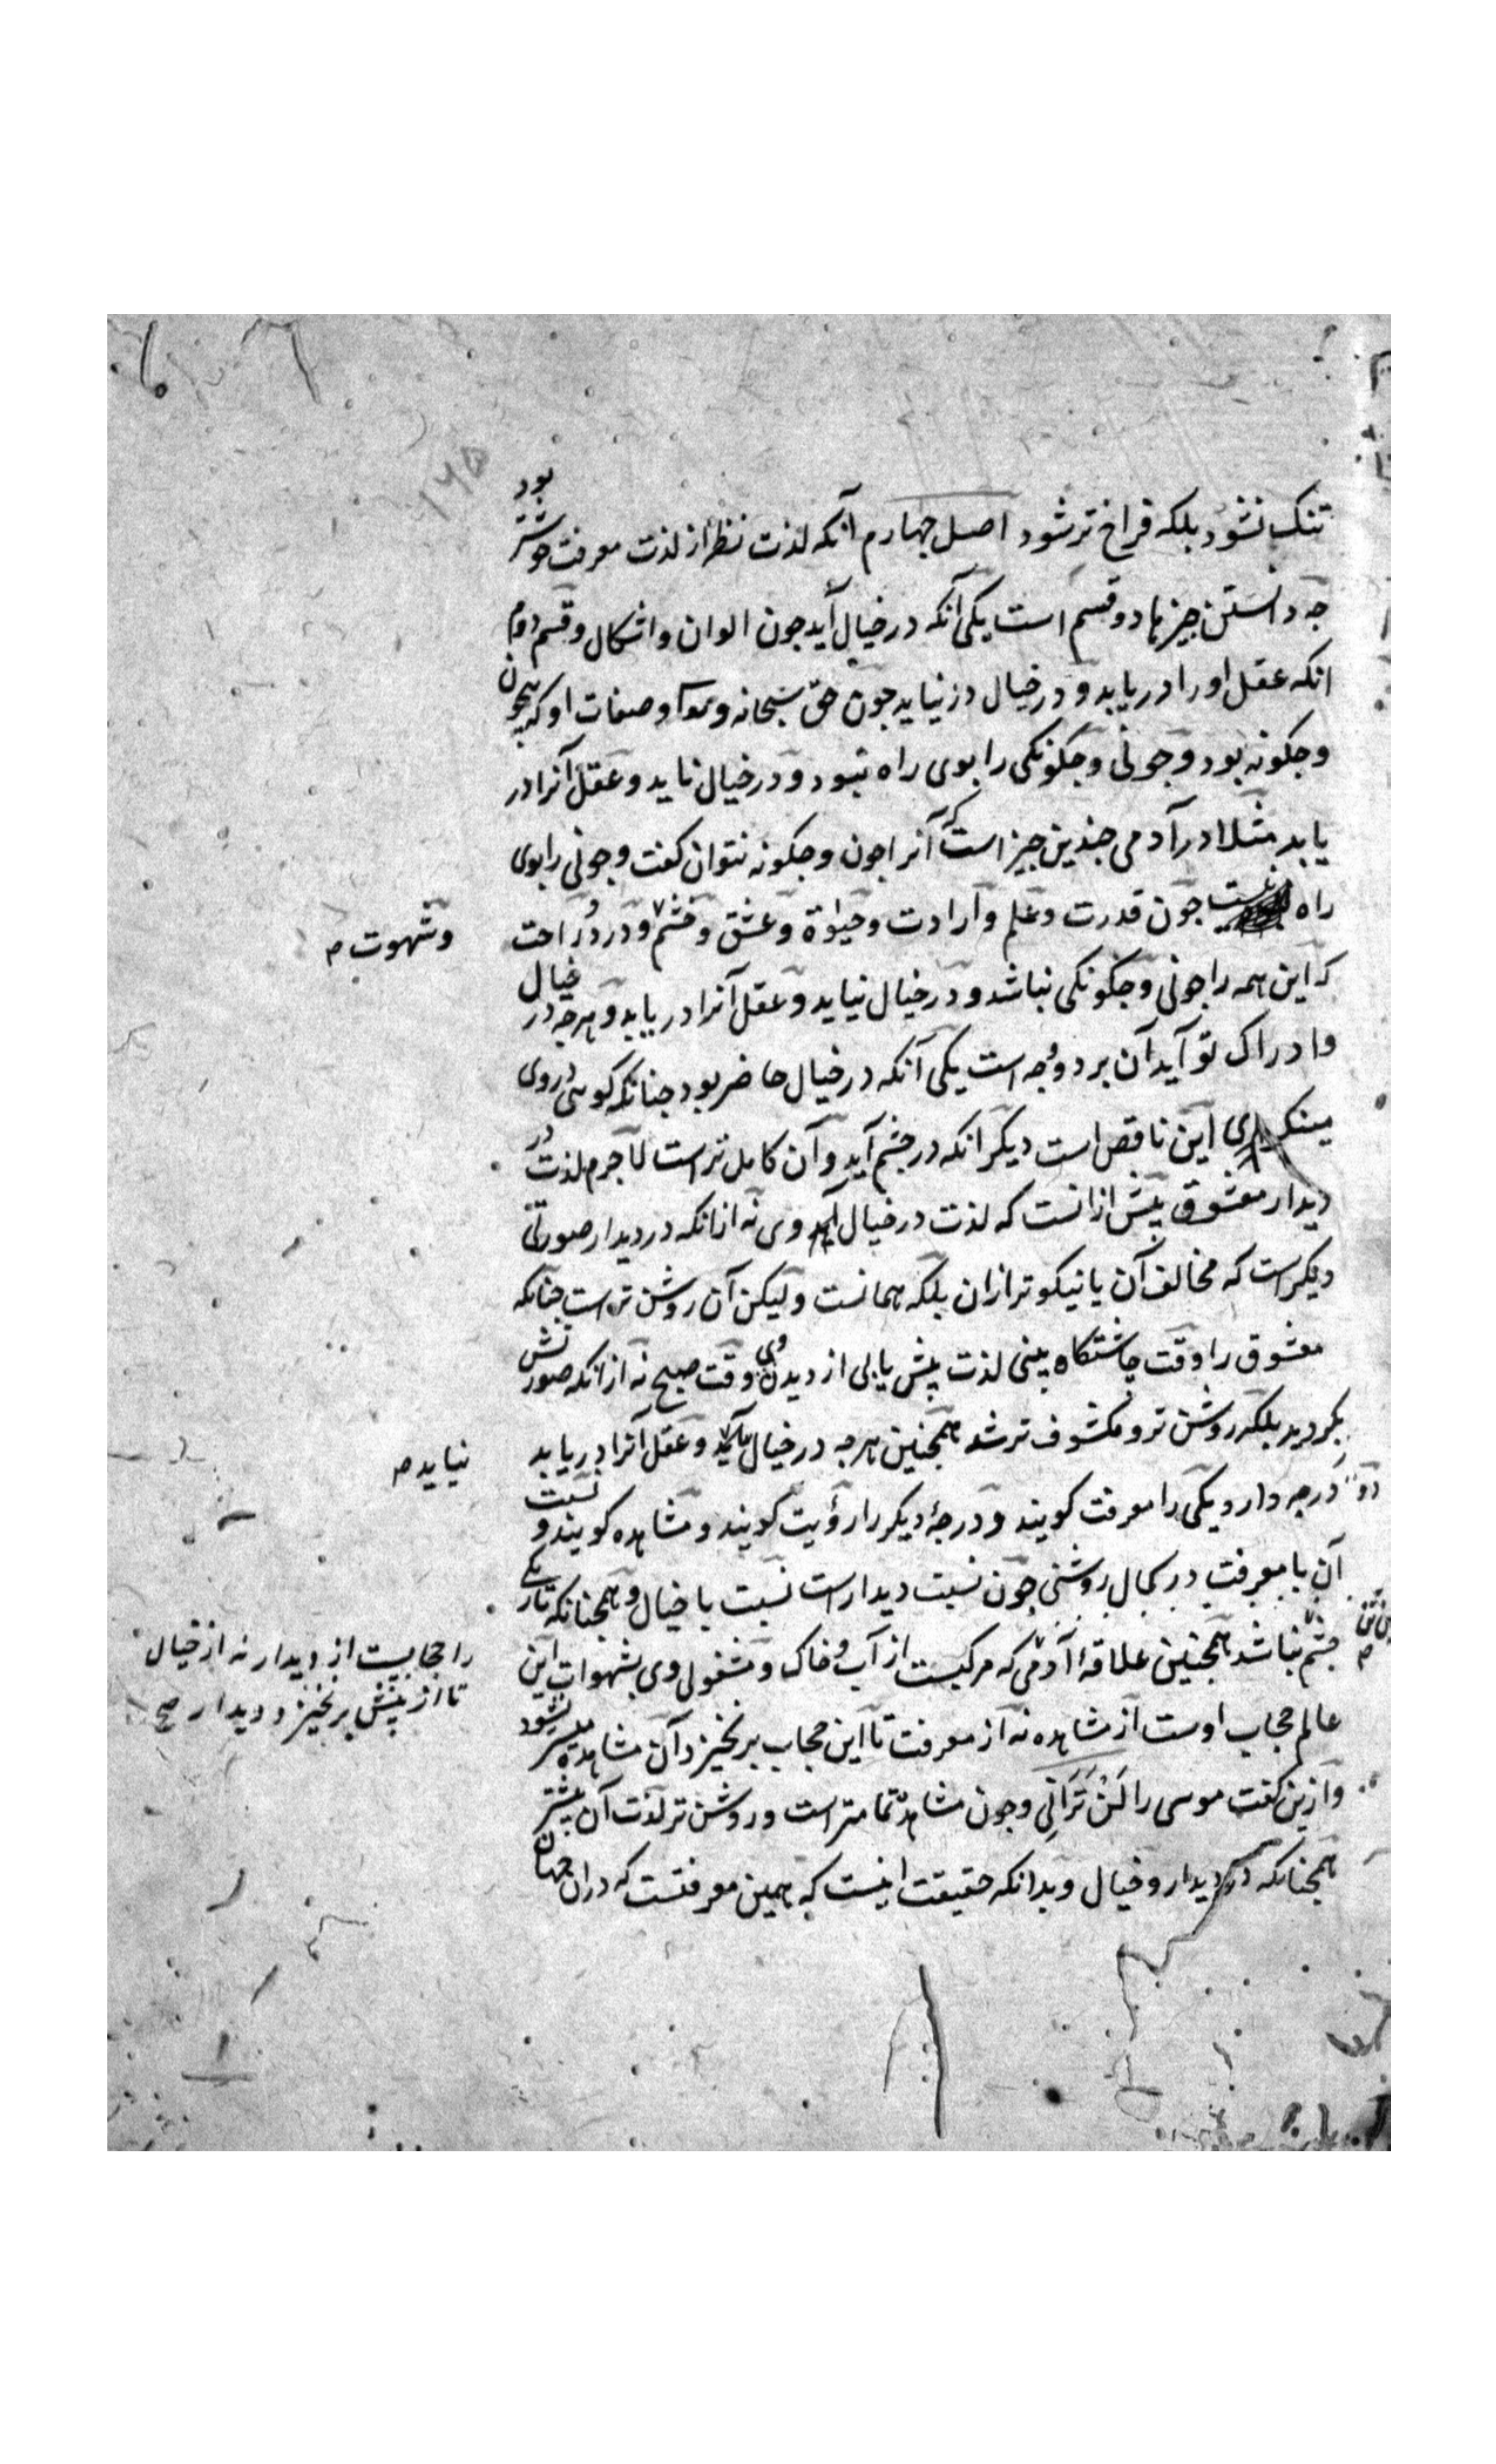 ۱۶۵
تنک نشود بلکه فراخ تر شود اصل جهارم آنکه لذت نظر از لذت معرفت خوشتر بود
جه دانستن جیزها دو قسم است یکی آنکه در خیال آید جون الوان و اشکال و قسم دوم
انکه عقل او را در یابد و در خیال در نیاید جون حق سبحانه و تعالی و صفات او که بیجون
و جکونه بود و جونی و جکونکی را بوی راه نبود و در خیال ناید و عقل آنرا در
یابد مثلا در آدمی جندین جیز است که آنرا جون و جکونه نتوان کفت و جونی را بوی
راه نیست جون قدرت و علم و ارادت و حیوة و عشق و خشم و درد و راحت
وشهوت صح
که این همه را جونی و جکونکی نباشد و در خیال نیاید و عقل آنرا در یابد و هرجه در خیال
و ادراک تو آید آن بر دو وجه است یکی آنکه در خیال حاضر بود جنانکه کویی در وی
مینکری این ناقص است دیکر انکه در جشم آید و آن کامل تر است لا جرم لذت در
دیدار معشوق بیش ازانست که لذت در خیال وی نه ازانکه در دیدار صورتی
دیکر است که مخالف آن یا نیکوتر ازان بلکه همانست ولیکن آن روشن تر است جنانکه
معشوق را وقت جاشتکاه بینی لذت بیش یابی از دیدن وی وقت صبح نه ازانکه صورتش
بکردید بلکه روشن تر و مکشوف تر شد همجنین هرجه در خیال و عقل آنرا در یابد
نیاید صح
دو درجه دارد یکی را معرفت کویند و درجۀ دیکر را رؤیت کویند و مشاهده کویند و نسبت
آن با معرفت در کمال روشنی جون نسبت دیدار است نسبت با خیال و همجنانکه تاریکی
جشم نباشد همجنین علاقۀ آدمی که مرکبست از آب و خاک و مشغولی وی بشهوات این
را حجابیست از دیدار نه از خیال
تا از پیش برنخیزد دیدار صح
عالم حجاب اوست از مشاهده نه از معرفت تا این حجاب برنخیزد آن مشاهده میسر نشود
و ازین کفت موسی را لَنْ تَرَانِی و جون مشاهده تمامتر است و روشن تر لذت آن بیشتر
همجنانکه در دیدار و خیال و بدانکه حقیقت اینست که همین معرفتست که دران جهان